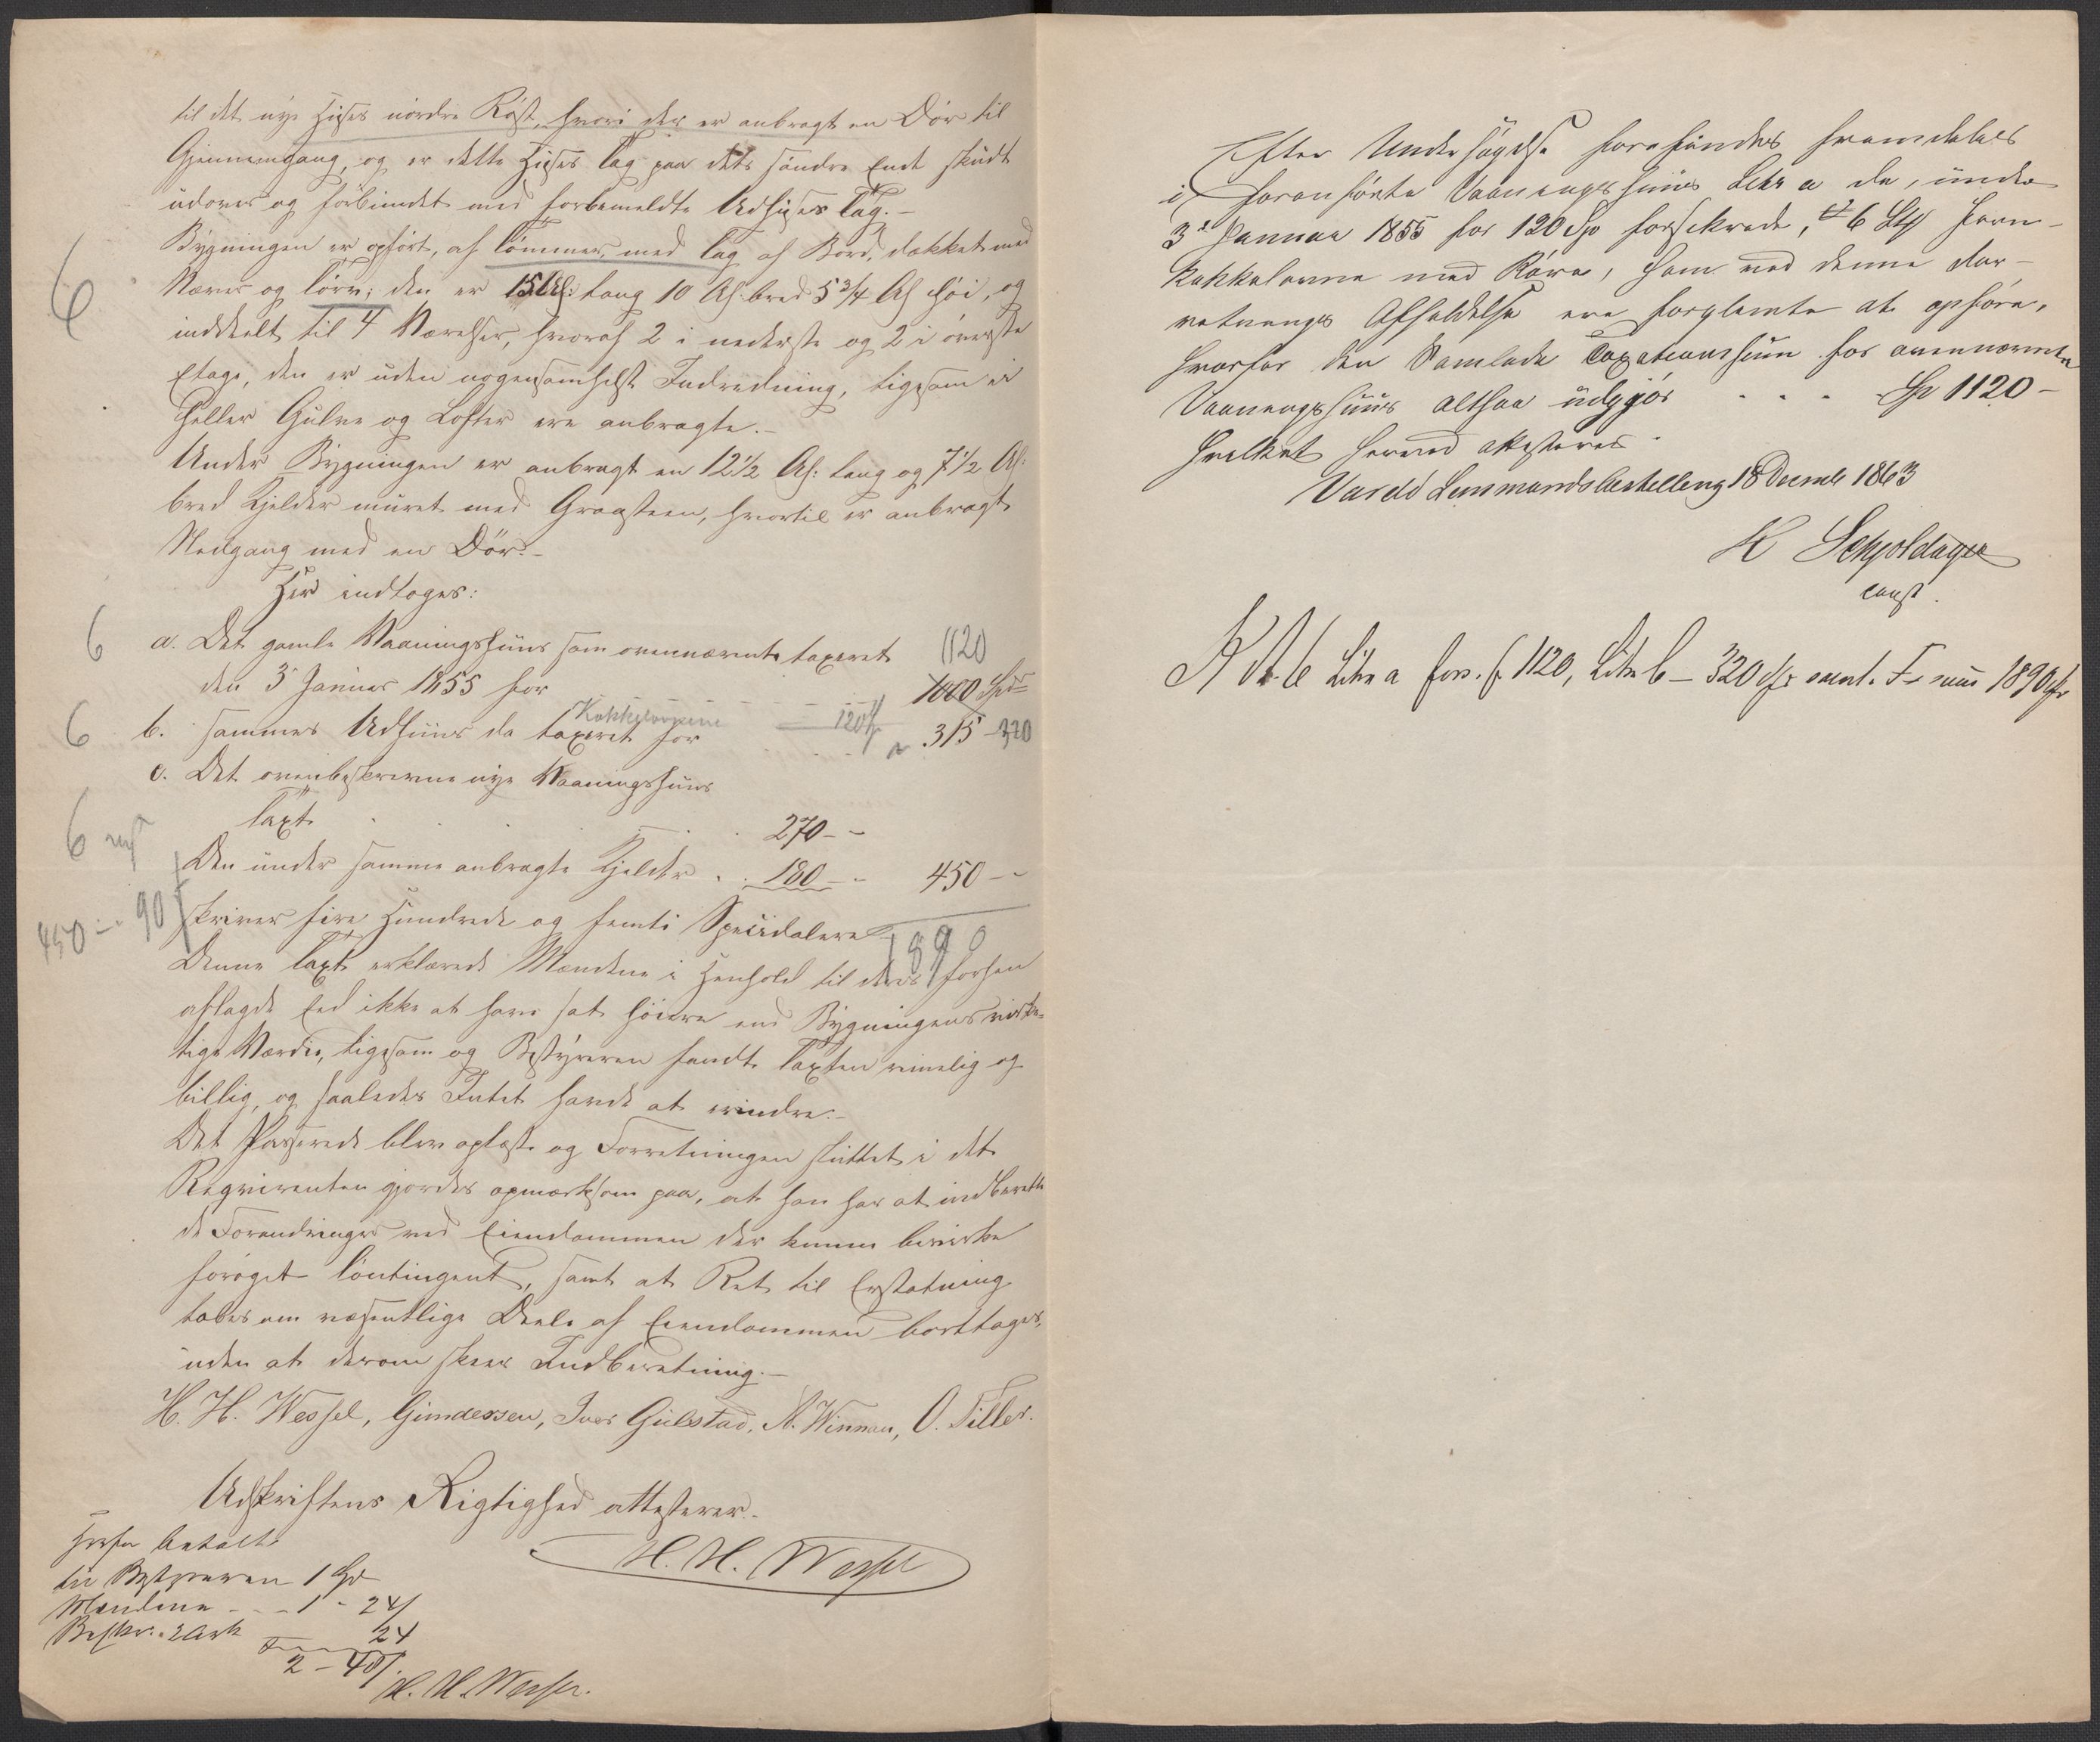 til det nye Huses nordre Röst, hvori der er anbragt en Dör til
Gjennemgang, og er dette Huses Tag paa dets söndre Ende skudt
udover og forbundet med forbemeldte Udhuses Tag.-
Bygningen er opfört, af Tömmer, med Tag af Bord, dækket med
Næver og Törv; den er 15 Al: lang 10 Al: bred 5 3/4 Al höi, og
6
inddeelt til 4 Værelser, hvoraf 2 i nederste og 2 i överste
Etage, den er uden nogensomhelst Indredning, ligesom ei
heller Gulve og Lofter ere anbragte.-
Under Bygningen er anbragt en 12 1/2 Al: lang og 7 1/2 Al:
bred Kjelder muret med Graasteen, hvortil er anbragt
Nedgang med en Dör.-
Her indtoges:
6 a. Det gamle Vaaningshuus som ovennævnt taxeret 1120
den 3 Januar 1855 for 1000 Spd
Kakkelovnene 120
6 b. sammes Udhuus da taxeret for 315 - 320
c. Det ovenbeskrevne nye Vaaningshuus
Taxt 270 - -
6
Den under samme anbragte Kjelder . . 180 - - 450 - -
450 - 90
skriver fire Hundrede og femti Speciedalere
1890
Denne Taxt erklærede Mændene i Henhold til deres forhen
aflagde Eed ikke at have sat höiere end Bygningens virke-
lige Værdie, ligesom og Bestyreren fandt Taxten rimelig og
billig, og saaledes Intet havde at erindre.-
Det Passerede blev oplæst og Forretningen sluttet i det
Reqvirenten gjordes opmærksom paa, at han har at indberette
de Forandringer ved Eiendommen der kunne bevirke
foröget Contingent, samt at Ret til Erstatning
tabes om væsentlige Deele af Eiendommen borttages,
uden at derom skeer Indberetning.-
H. H. Wessel, Gundersen, Iver Gulstad, A. Winnan, O. Tiller.
Udskriftens Rigtighed attesterer.-
H. H. Wessel
Herfor betalt
til Bestyreren 1 Spd
Mændene - - - 1 - 24
Beskr. 2 Ark 24
2 - 48
H. H. Wessel.
Efter Undersögelse forefindes fremdeles
i foranförte Vaaningshuus Litr a de, under
3 Januar 1855 for 120 Spd forsikrede, 6 Stk Jern-
kakkelovne med Rörer, som ved denne For-
retnings Afholdelse ere forglemte at opföre,
hvorfor den samlede Taxationssum for ovennævnte
Vaaningshuus altsaa udgjör - - - Spd 1120 -
hvilket herved attesteres
Vardö Lensmandsbestilling 18 Decembr 1863
K Schjoldager
const.
N 6 Litr a fors. f. 1120, Litr b - 320 1890